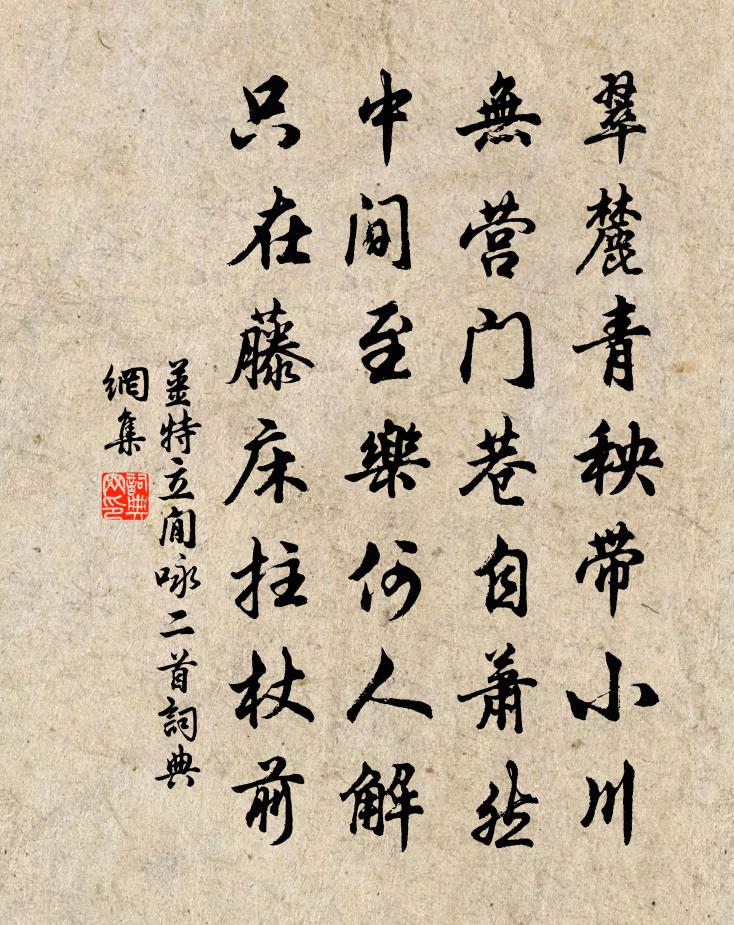 翠麓青秧带小川
無营门巷自萧然
中间至樂何人解
只在藤床拄杖前
姜特立闲咏二首詞典
網集
詞典網印